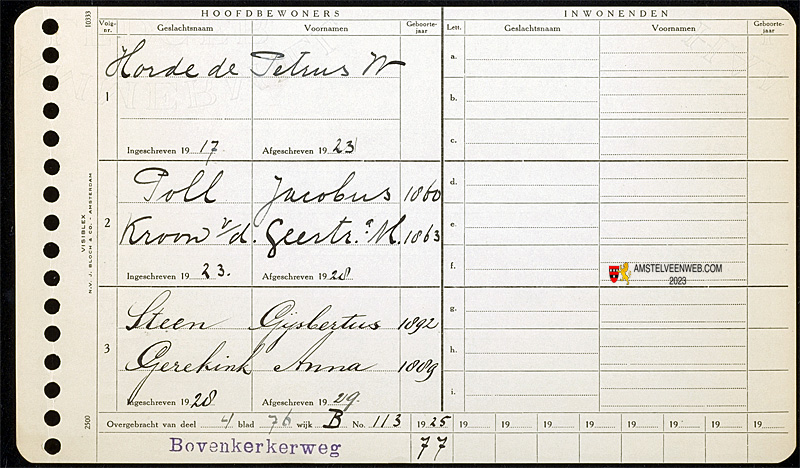 HOOFDBEWONERS INWONENDEN
Volg-nr. Geslachtsnaam Voornamen Geboorte-jaar Lett. Geslachtsnaam Voornamen Geboorte-jaar
10333
1 Horde de Petrus W
Ingeschreven 19 17 Afgeschreven 19 23
2 Poll Jacobus 1860
Kroon v/d. Geertr.a M. 1863
Ingeschreven 19 23. Afgeschreven 19 28
3 Steen Gijsbertus 1892
Gerekink Anna 1889
Ingeschreven 19 28 Afgeschreven 19 29.
a.
b.
c.
d.
e.
f.
g.
h.
i.
AMSTELVEENWEB.COM
2023
VISIBLEX
N.V. J. BLOCH & CO. - AMSTERDAM
2500
Overgebracht van deel 4 blad 76 wijk B No. 113 1925 19 19 19 19 19 19 19 19
Bovenkerkerweg 77